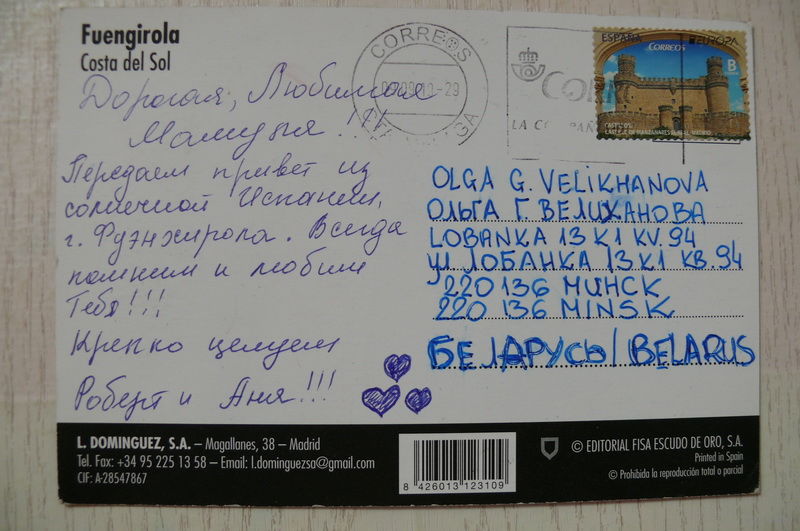 Fuengirola
Costa del Sol
Дорогая, Любимая
Мамуля!!!
Передаем привет из
солнечной Испании,
г. Фуэнхирола. Всегда
помним и любим
Тебя!!!
Крепко целуем
Роберт и Аня!!!
CORREOS
ESPAÑA
EUROPA
CORREOS
B
LA
OLGA G. VELIKHANOVA
ОЛЬГА Г. ВЕЛИХАНОВА
LOBANKA 13 K1 KV. 94
УЛ ЛОБАНКА 13 К1 КВ. 94
220 136 МИНСК
220 136 MINSK
БЕЛАРУСЬ/BELARUS
L. DOMINGUEZ, S.A. – Magallanes, 38 – Madrid
Tel. Fax: +34 95 225 13 58 – Email: l.dominguezsa@gmail.com
CIF: A-28547867
8 426013 123109
© EDITORIAL FISA ESCUDO DE ORO, S.A.
Printed in Spain
© Prohibida la reproducción total o parcial